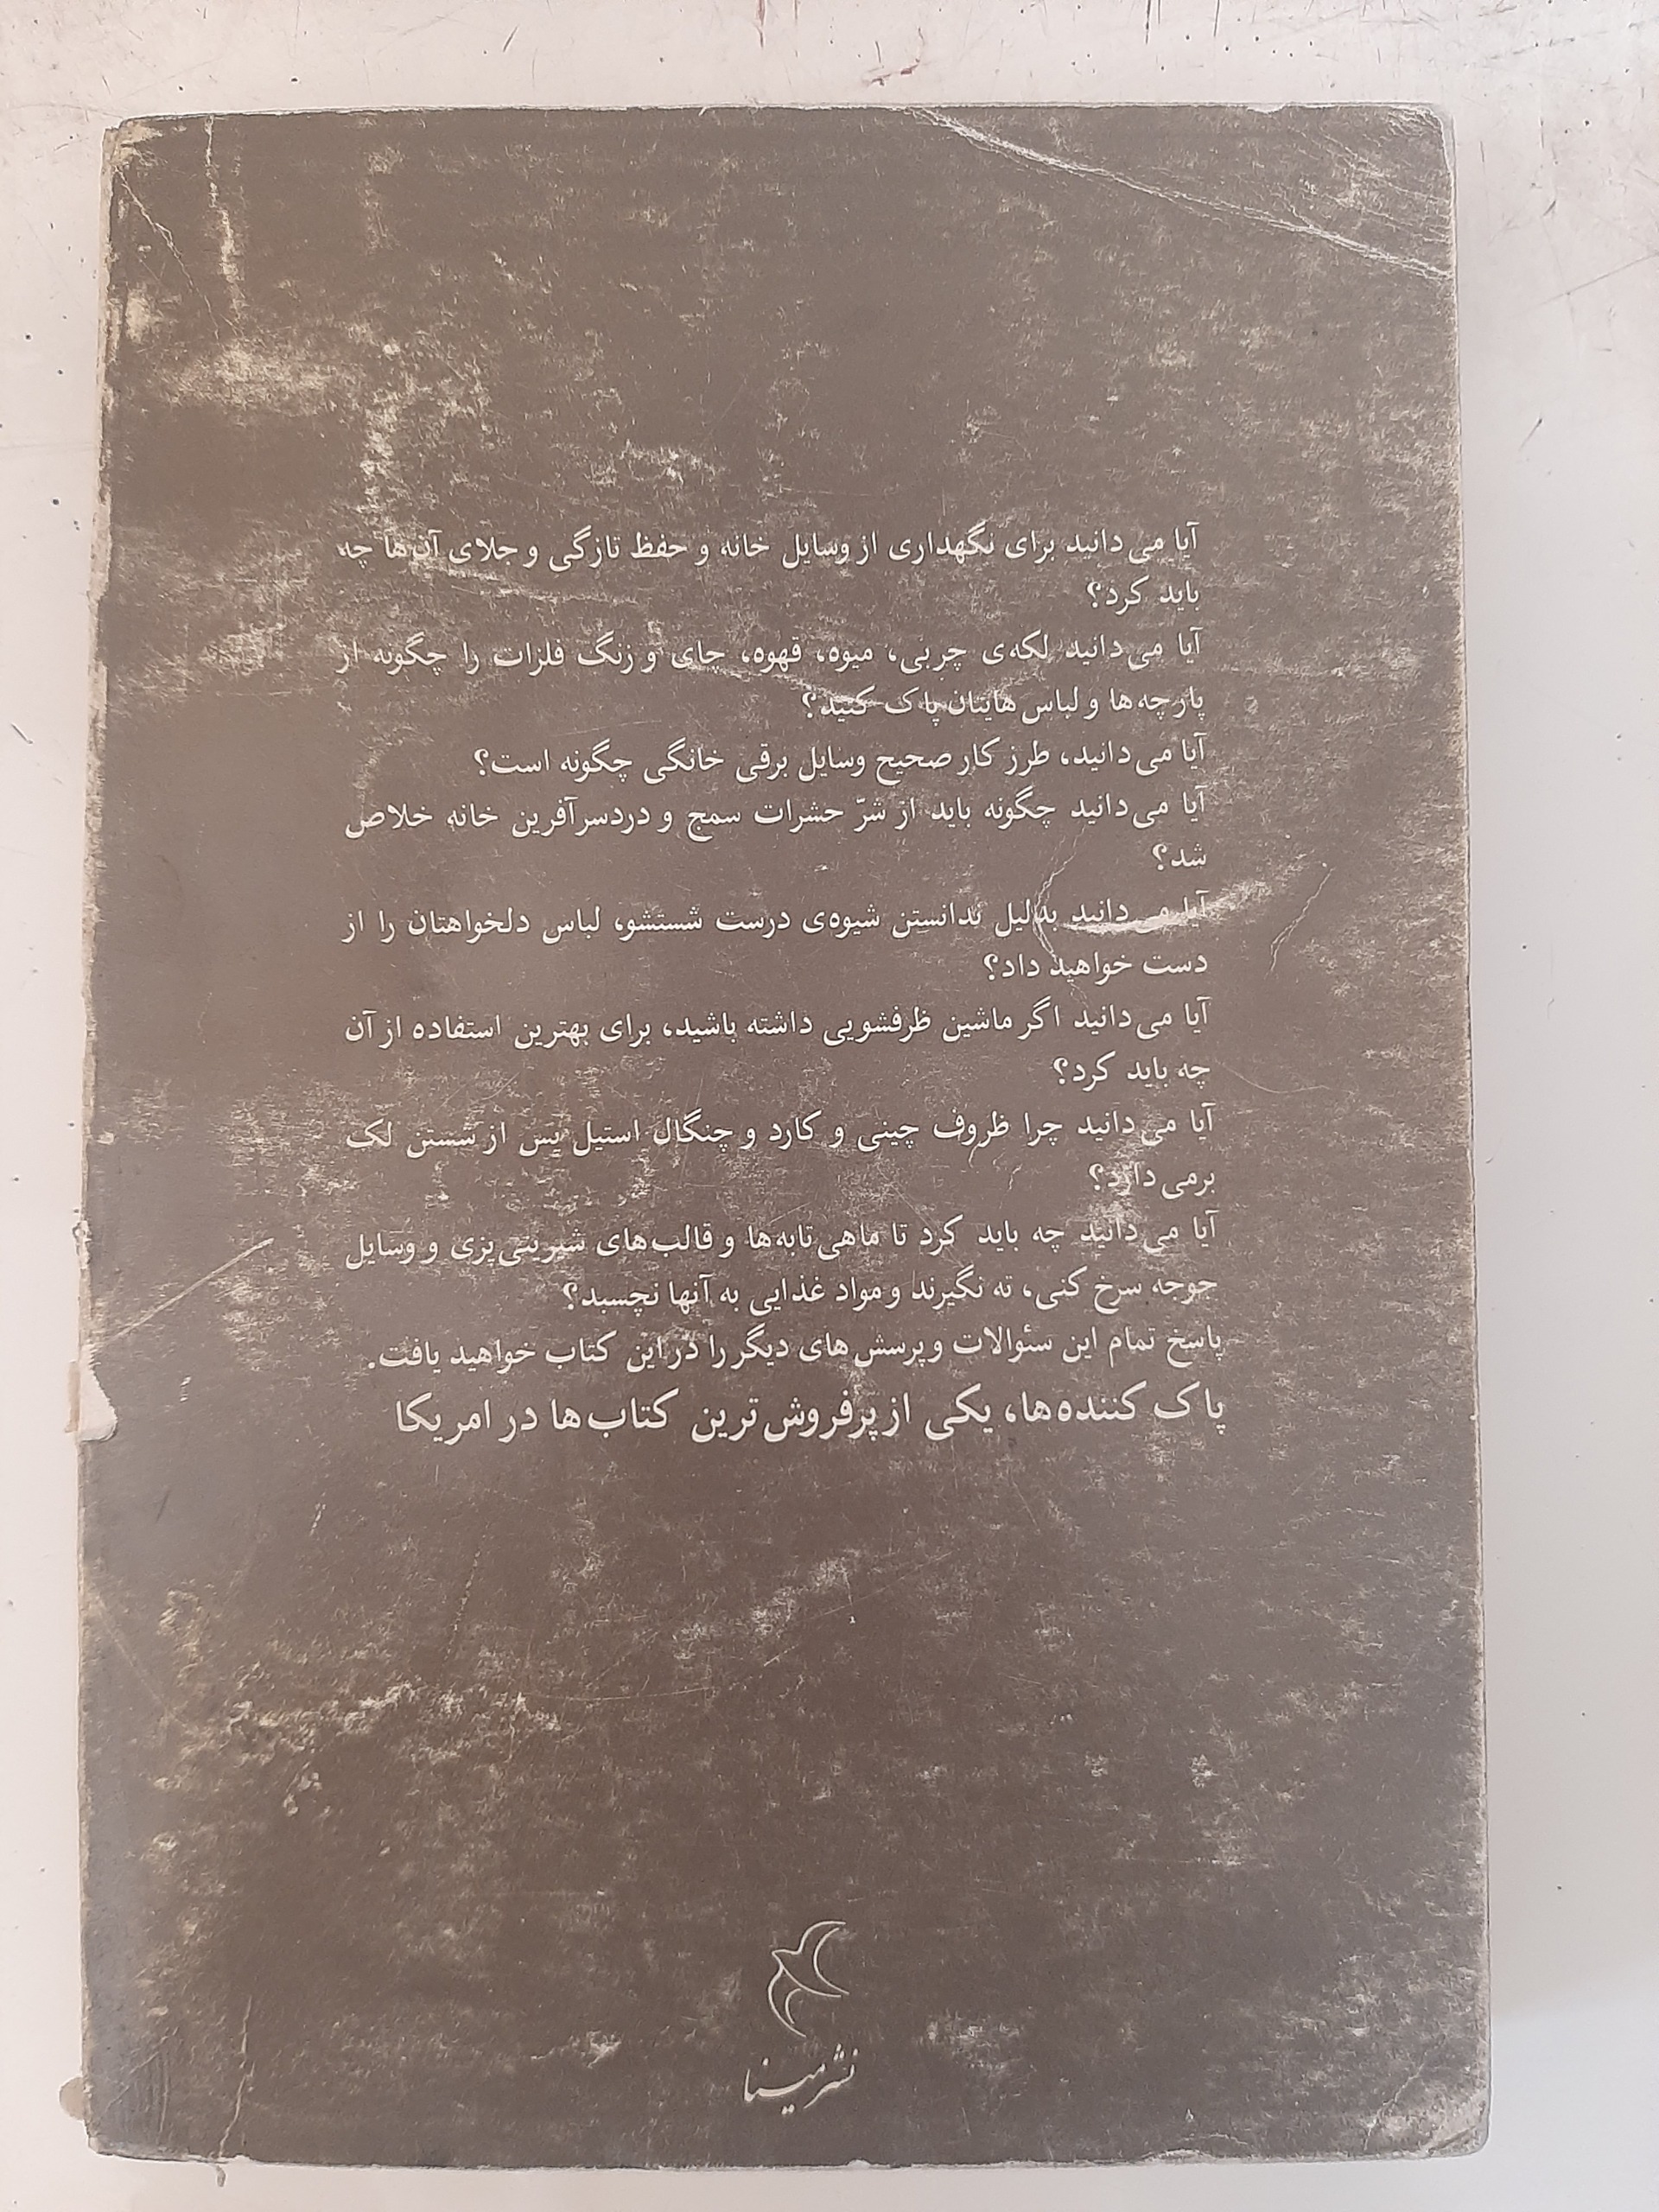 آیا می‌دانید برای نگهداری از وسایل خانه و حفظ تازگی و جلای آن‌ها چه
باید کرد؟
آیا می‌دانید لکه‌ی چربی، میوه، قهوه، چای و زنگ فلزات را چگونه از
پارچه‌ها و لباس‌هایتان پاک کنید؟
آیا می‌دانید، طرز کار صحیح وسایل برقی خانگی چگونه است؟
آیا می‌دانید چگونه باید از شرّ حشرات سمج و دردسرآفرین خانه خلاص
شد؟
آیا می‌دانید بدلیل ندانستن شیوه‌ی درست شستشو، لباس دلخواهتان را از
دست خواهید داد؟
آیا می‌دانید اگر ماشین ظرفشویی داشته باشید، برای بهترین استفاده از آن
چه باید کرد؟
آیا می‌دانید چرا ظروف چینی و کارد و چنگال استیل پس از شستن لک
برمی‌دارد؟
آیا می‌دانید چه باید کرد تا ماهی‌تابه‌ها و قالب‌های شیرینی‌پزی و وسایل
جوجه سرخ کنی، ته نگیرند و مواد غذایی به آنها نچسبد؟
پاسخ تمام این سئوالات و پرسش‌های دیگر را در این کتاب خواهید یافت.
پاک کننده‌ها، یکی از پرفروش‌ترین کتاب‌ها در امریکا
نشر مینا